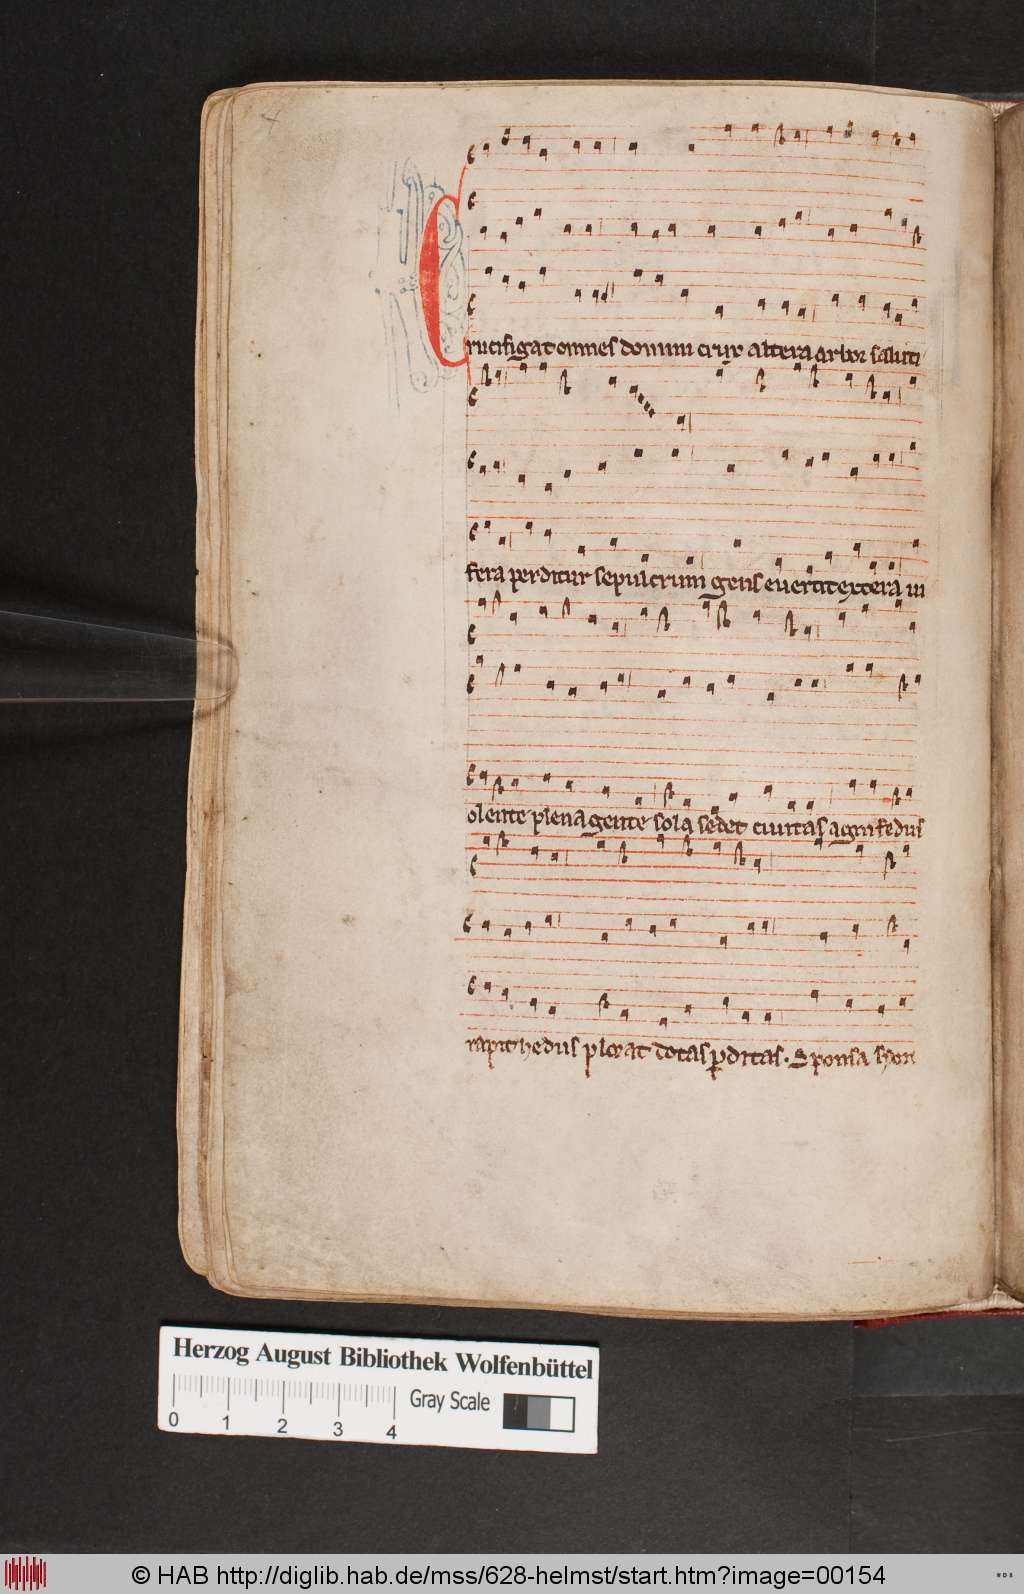 Crucifigat omnes domini crux altera arbor saluti
fera perditur sepulcrum gens euertit extera ui
olente plena gente sola sedet ciuitas agni fedus
rapit hedus plorat dotas pditas. Sponsa syon
Herzog August Bibliothek Wolfenbüttel
Gray Scale
0 1 2 3 4
© HAB http://diglib.hab.de/mss/628-helmst/start.htm?image=00154